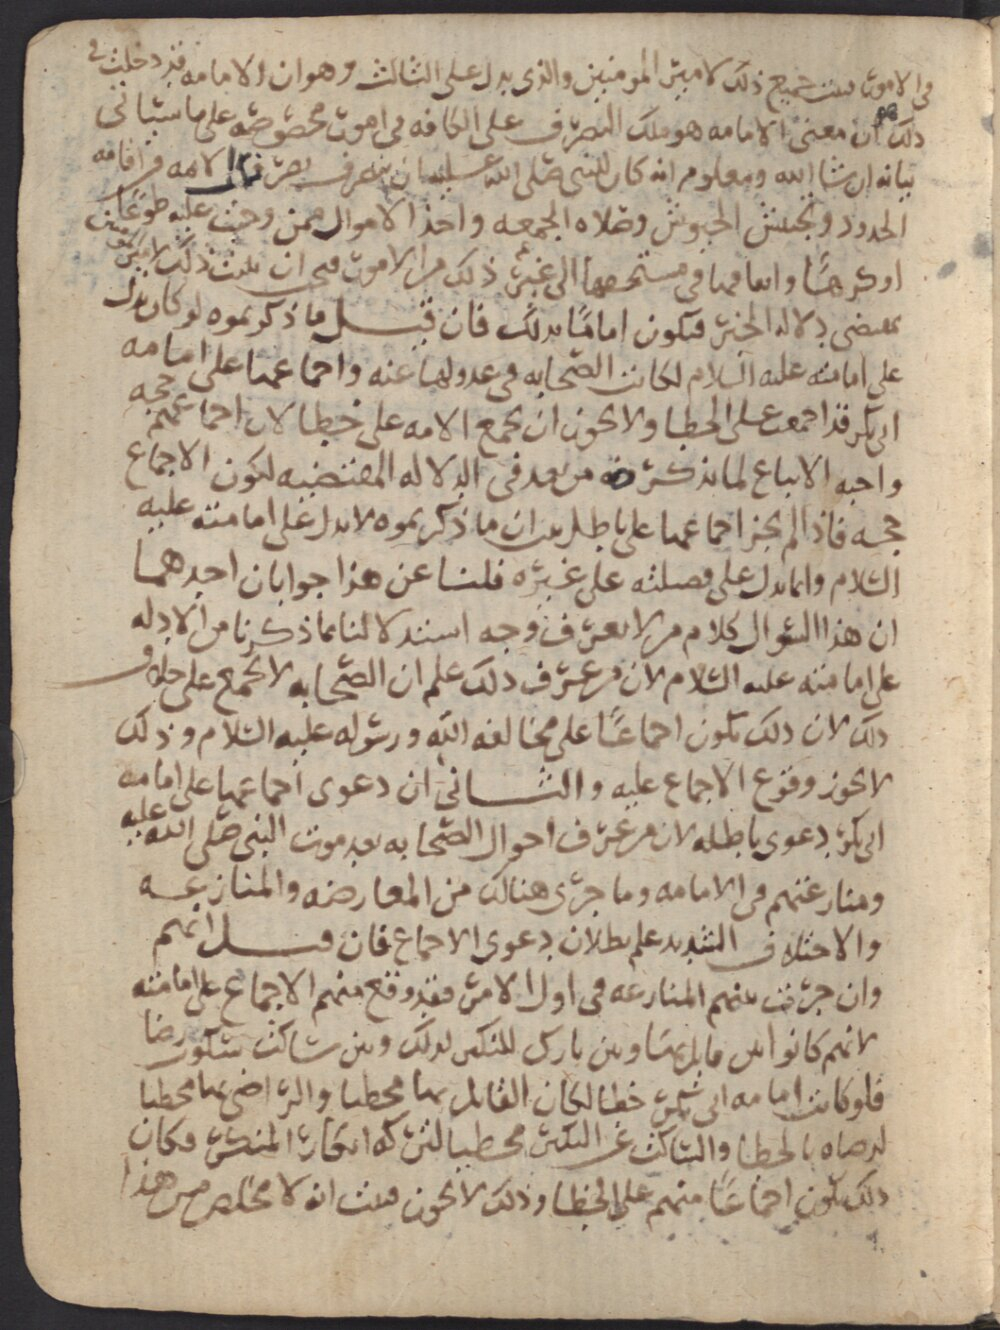 في الامور فيثبت جميع ذلك لامير المومنين والذي يدل على الثالث وهو ان الامامه قد دخلت في
ذلك هو ان معنى الامامه هو ملك التصرف على الكافه في امور مخصوصه على ما سياتي
بيانه ان شا الله ومعلوم انه كان للنبي صلى الله عليه ان يتصرف تصرف الامه من اقامه
الحدود وتجييش الجيوش وصلاه الجمعه واخذ الاموال ممن وجبت عليه طوعا
او كرها وانفاقها في مستحقها الى غير ذلك من الامور فيجب ان يثبت ذلك لامير
بمقتضى دلاله الخبر فيكون اماما بذلك فان قيل ما ذكرتموه لو كان يدل
على امامته عليه السلام لكانت الصحابه في عدولها عنه واجماعها على امامه
ابي بكر قد اجمعت على الخطا ولا يجوز ان تجمع الامه على خطا لان اجماعهم حجه
واجبه الاتباع لما نذكره من بعد في الدلاله المقتضيه لكون الاجماع
حجه فاذا لم يجز اجماعها على باطل ثبت ان ما ذكرتموه لا يدل على امامته عليه
السلام وانما يدل على فضيلته على غيره قلنا عن هذا جوابان احدهما
ان هذا السوال كلام من لا يعرف وجه استدلالنا بما ذكرنا من الادله
على امامته عليه السلام لان من عرف ذلك علم ان الصحابه لا تجمع على خلاف
ذلك لان ذلك يكون اجماعا على مخالفه الله ورسوله عليه السلام وذلك
لا يجوز وقوع الاجماع عليه والثاني ان دعوى اجماعها على امامه
ابي بكر دعوى باطله لان من عرف احوال الصحابه بعد موت النبي صلى الله عليه
ومنازعتهم في الامامه وما جرى هنالك من المعارضه والمنازعه
والاختلاف الشديد علم بطلان دعوى الاجماع فان قيل انهم
وان جرت بينهم المنازعه في اول الامر فقد وقع منهم الاجماع على امامته
لانهم كانوا بين قايل بها وبين تارك للنكير لذلك وبين ساكت سكوت رضا
فلو كانت امامه ابي بكر خطا لكان القايل بها مخطيا والراضي بها مخطيا
لرضاه بالخطا والساكت عن النكير مخطيا لتركه انكار المنكر فكان
ذلك يكون اجماعا منهم على الخطا وذلك لا يجوز فيثبت انه لا مخلص من هذا